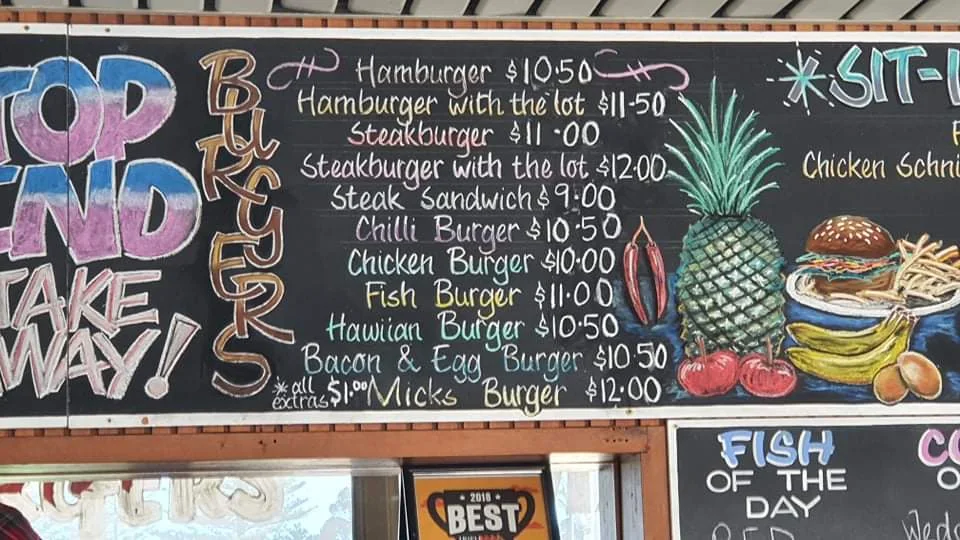 TOP
END
TAKE
WAY!
BURGERS
Hamburger $10.50
Hamburger with the lot $11.50
Steakburger $11.00
Steakburger with the lot $12.00
Steak Sandwich $9.00
Chilli Burger $10.50
Chicken Burger $10.00
Fish Burger $11.00
Hawiian Burger $10.50
Bacon & Egg Burger $10.50
Micks Burger $12.00
*all extras $1.00
*SIT-
Chicken Schni
FISH
OF THE
DAY
2018
BEST